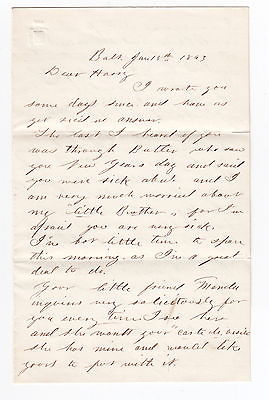 Balt. Jan 18th 1863
Dear Harry
I wrote you
some days since and have as
yet rec'd no answer.
The last I heard of you
was through Butler, who saw
you New Years day and said
you were sick abed and I
am very much worried about
my little Brother, for I'm
afraid you are very sick.
I've but little time to spare
this morning as I've a good
deal to do.
Your little friend
inquires very solicitously for
you every time I see her
and she wants your "carte de visite
she has mine and would like
yours to put with it.